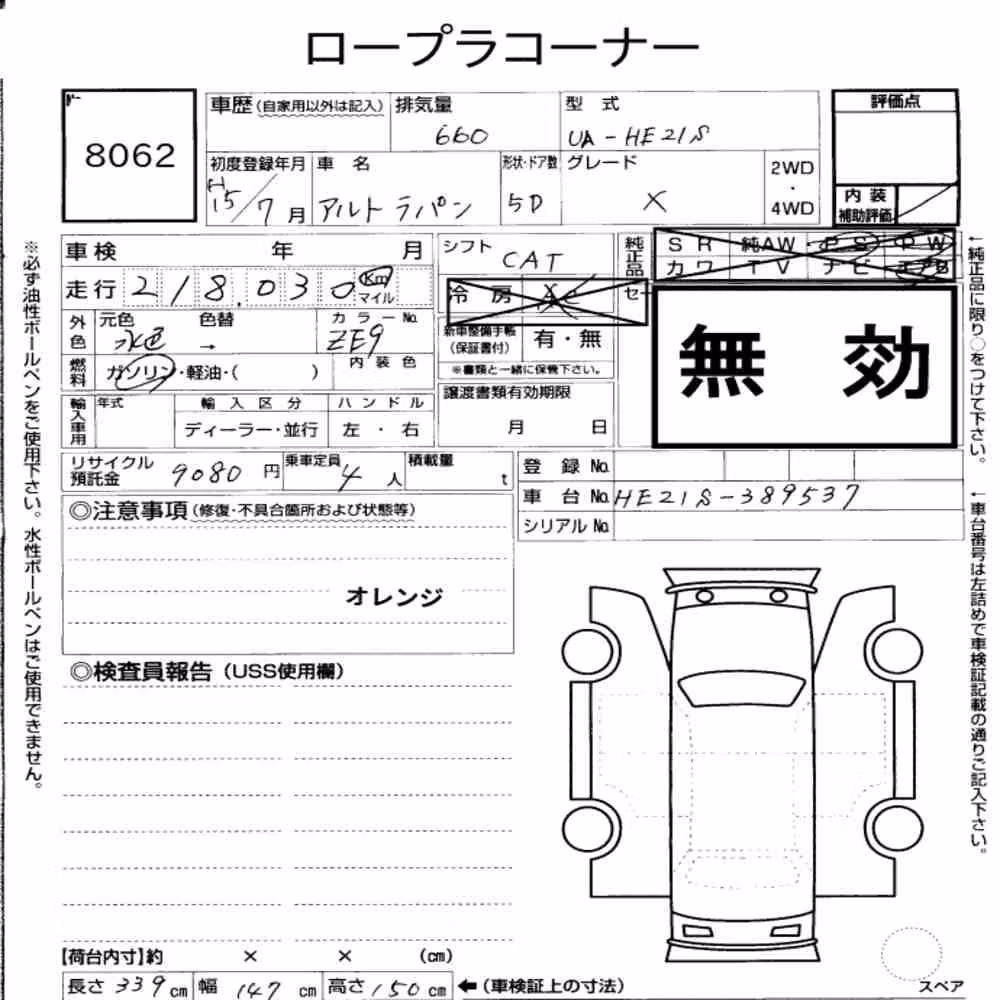 ロープラコーナー
8062
車歴(自家用以外は記入) 排気量 660
型式 UA-HE21S
評価点
初度登録年月 H15/7月
車名 アルトラパン
形状・ドア数 5D
グレード X
2WD・4WD
内装補助評価
車検 年 月
走行 218.030 Km マイル
シフト CAT
冷房 AC
純正品
SR 純AW PS PW
カワ TV ナビ エアB
セー
外色 元色 水色 色替 →
カラーNo. ZE9
燃料 ガソリン・軽油・( )
内装色
新車整備手帳(保証書付) 有・無
※書類と一緒に保管下さい。
無効
輸入車用 年式 輸入区分 ディーラー・並行
ハンドル 左・右
譲渡書類有効期限
月 日
リサイクル預託金 9080円
乗車定員 4人
積載量 t
登録No.
車台No. HE21S-389537
シリアルNo.
◎注意事項(修復・不具合箇所および状態等)
オレンジ
◎検査員報告(USS使用欄)
【荷台内寸】約 × × (cm)
長さ 339cm 幅 147cm 高さ 150cm ←(車検証上の寸法)
スペア
※必ず油性ボールペンをご使用下さい。水性ボールペンはご使用できません。
←純正品に限り○をつけて下さい。
←車台番号は左詰めで車検証記載の通りご記入下さい。